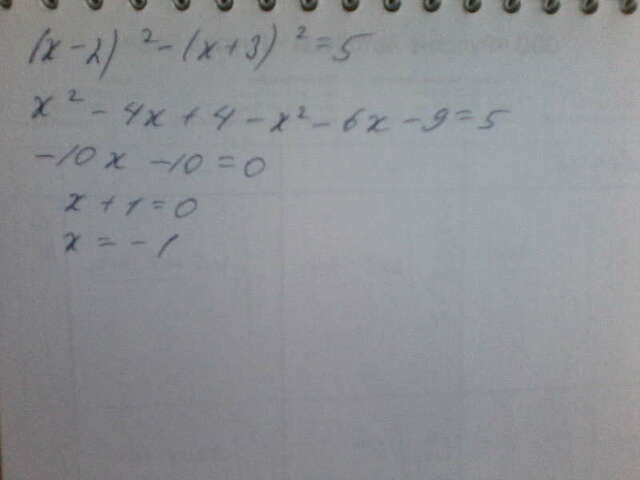 (x-2)²-(x+3)²=5
x²-4x+4-x²-6x-9=5
-10x-10=0
x+1=0
x=-1